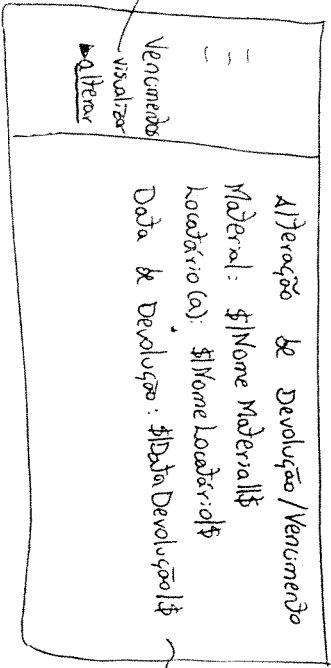 Vencimentos
- visualizar
alterar
Alteração de Devolução/Vencimento
Material: $|NomeMaterial|$
Locatário(a): $|NomeLocatário|$
Data de Devolução: $|DataDevolução|$